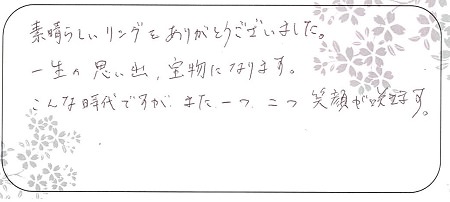 素晴らしいリングをありがとうございました。
一生の思い出、宝物になります。
こんな時代ですが、また一つ 二つ 笑顔が咲きます。